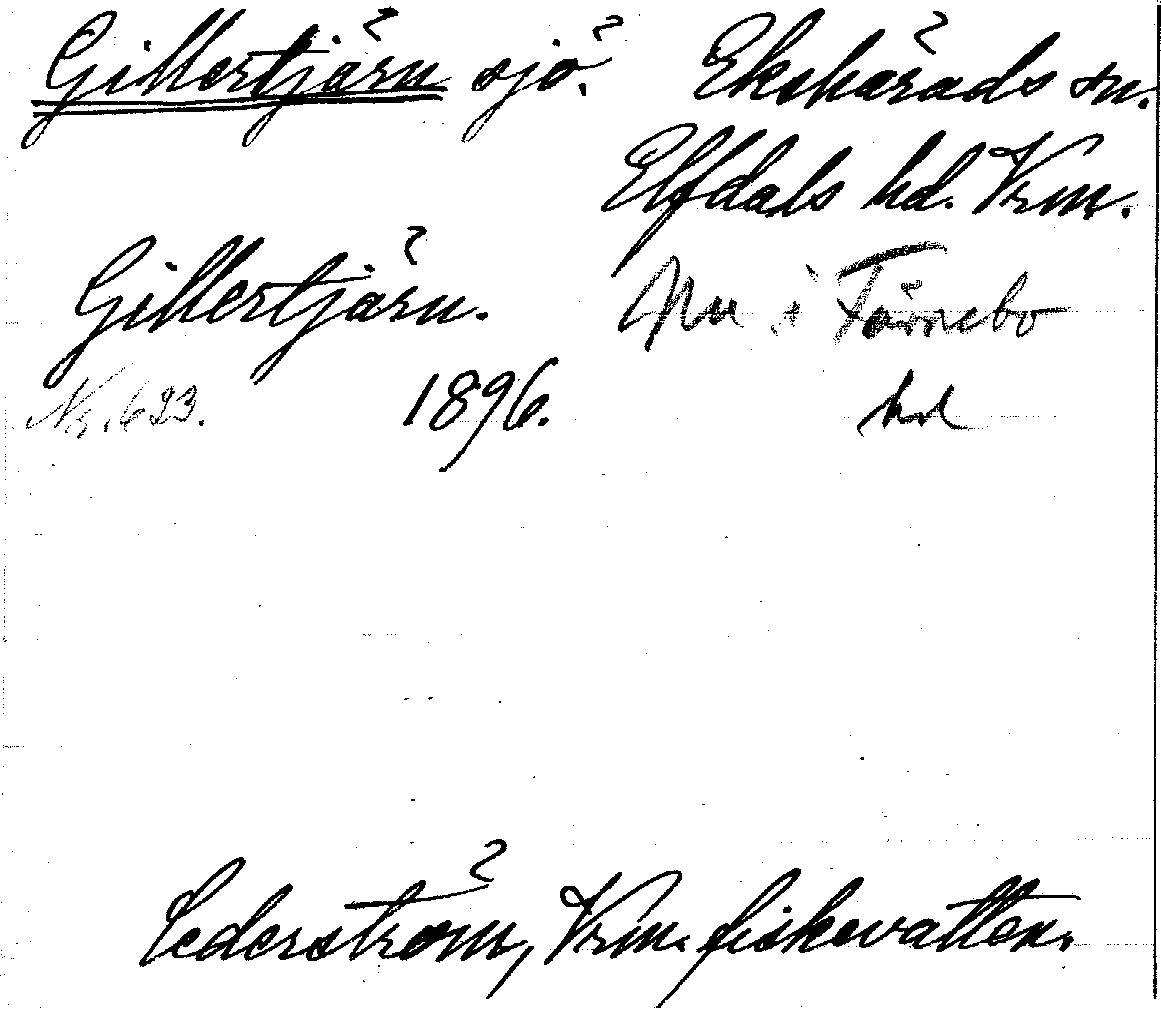 Gillertjärn sjö. Ekshärads sn.
Elfdals hd. Vrm.
Gillertjärn. Nu i Färnebo
Nr. 623. 1896. hd
Cederström, Vrm. fiskevatten.